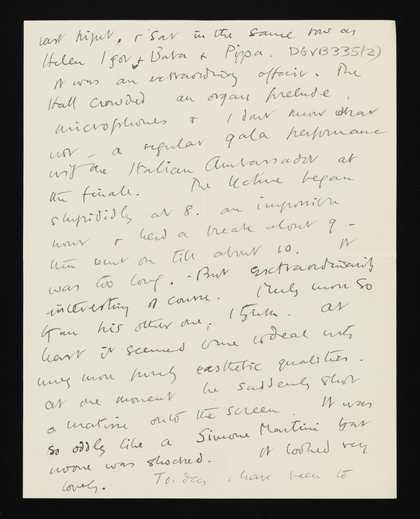 last night, & sat in the same row as
Helen Igor & Baba & Pippa. DGVB335(2)
It was an extraordinary affair. The
Hall crowded an organ prelude,
microphones & I dont know what
not – a regular gala performance
with the Italian Ambassador at
the finale. The lecture began
stupidly at 8. an impossible
hour & had a break about 9 –
then went on till about 10. It
was too long. – But extraordinarily
interesting of course. Much more so
than his other one, I think. At
least it seemed to me to deal with
much more purely esthetic qualities.
At one moment he suddenly shot
a Matisse onto the screen. It was
so oddly like a Simone Martini that
no one was shocked. It looked very
lovely. To-day I have been to